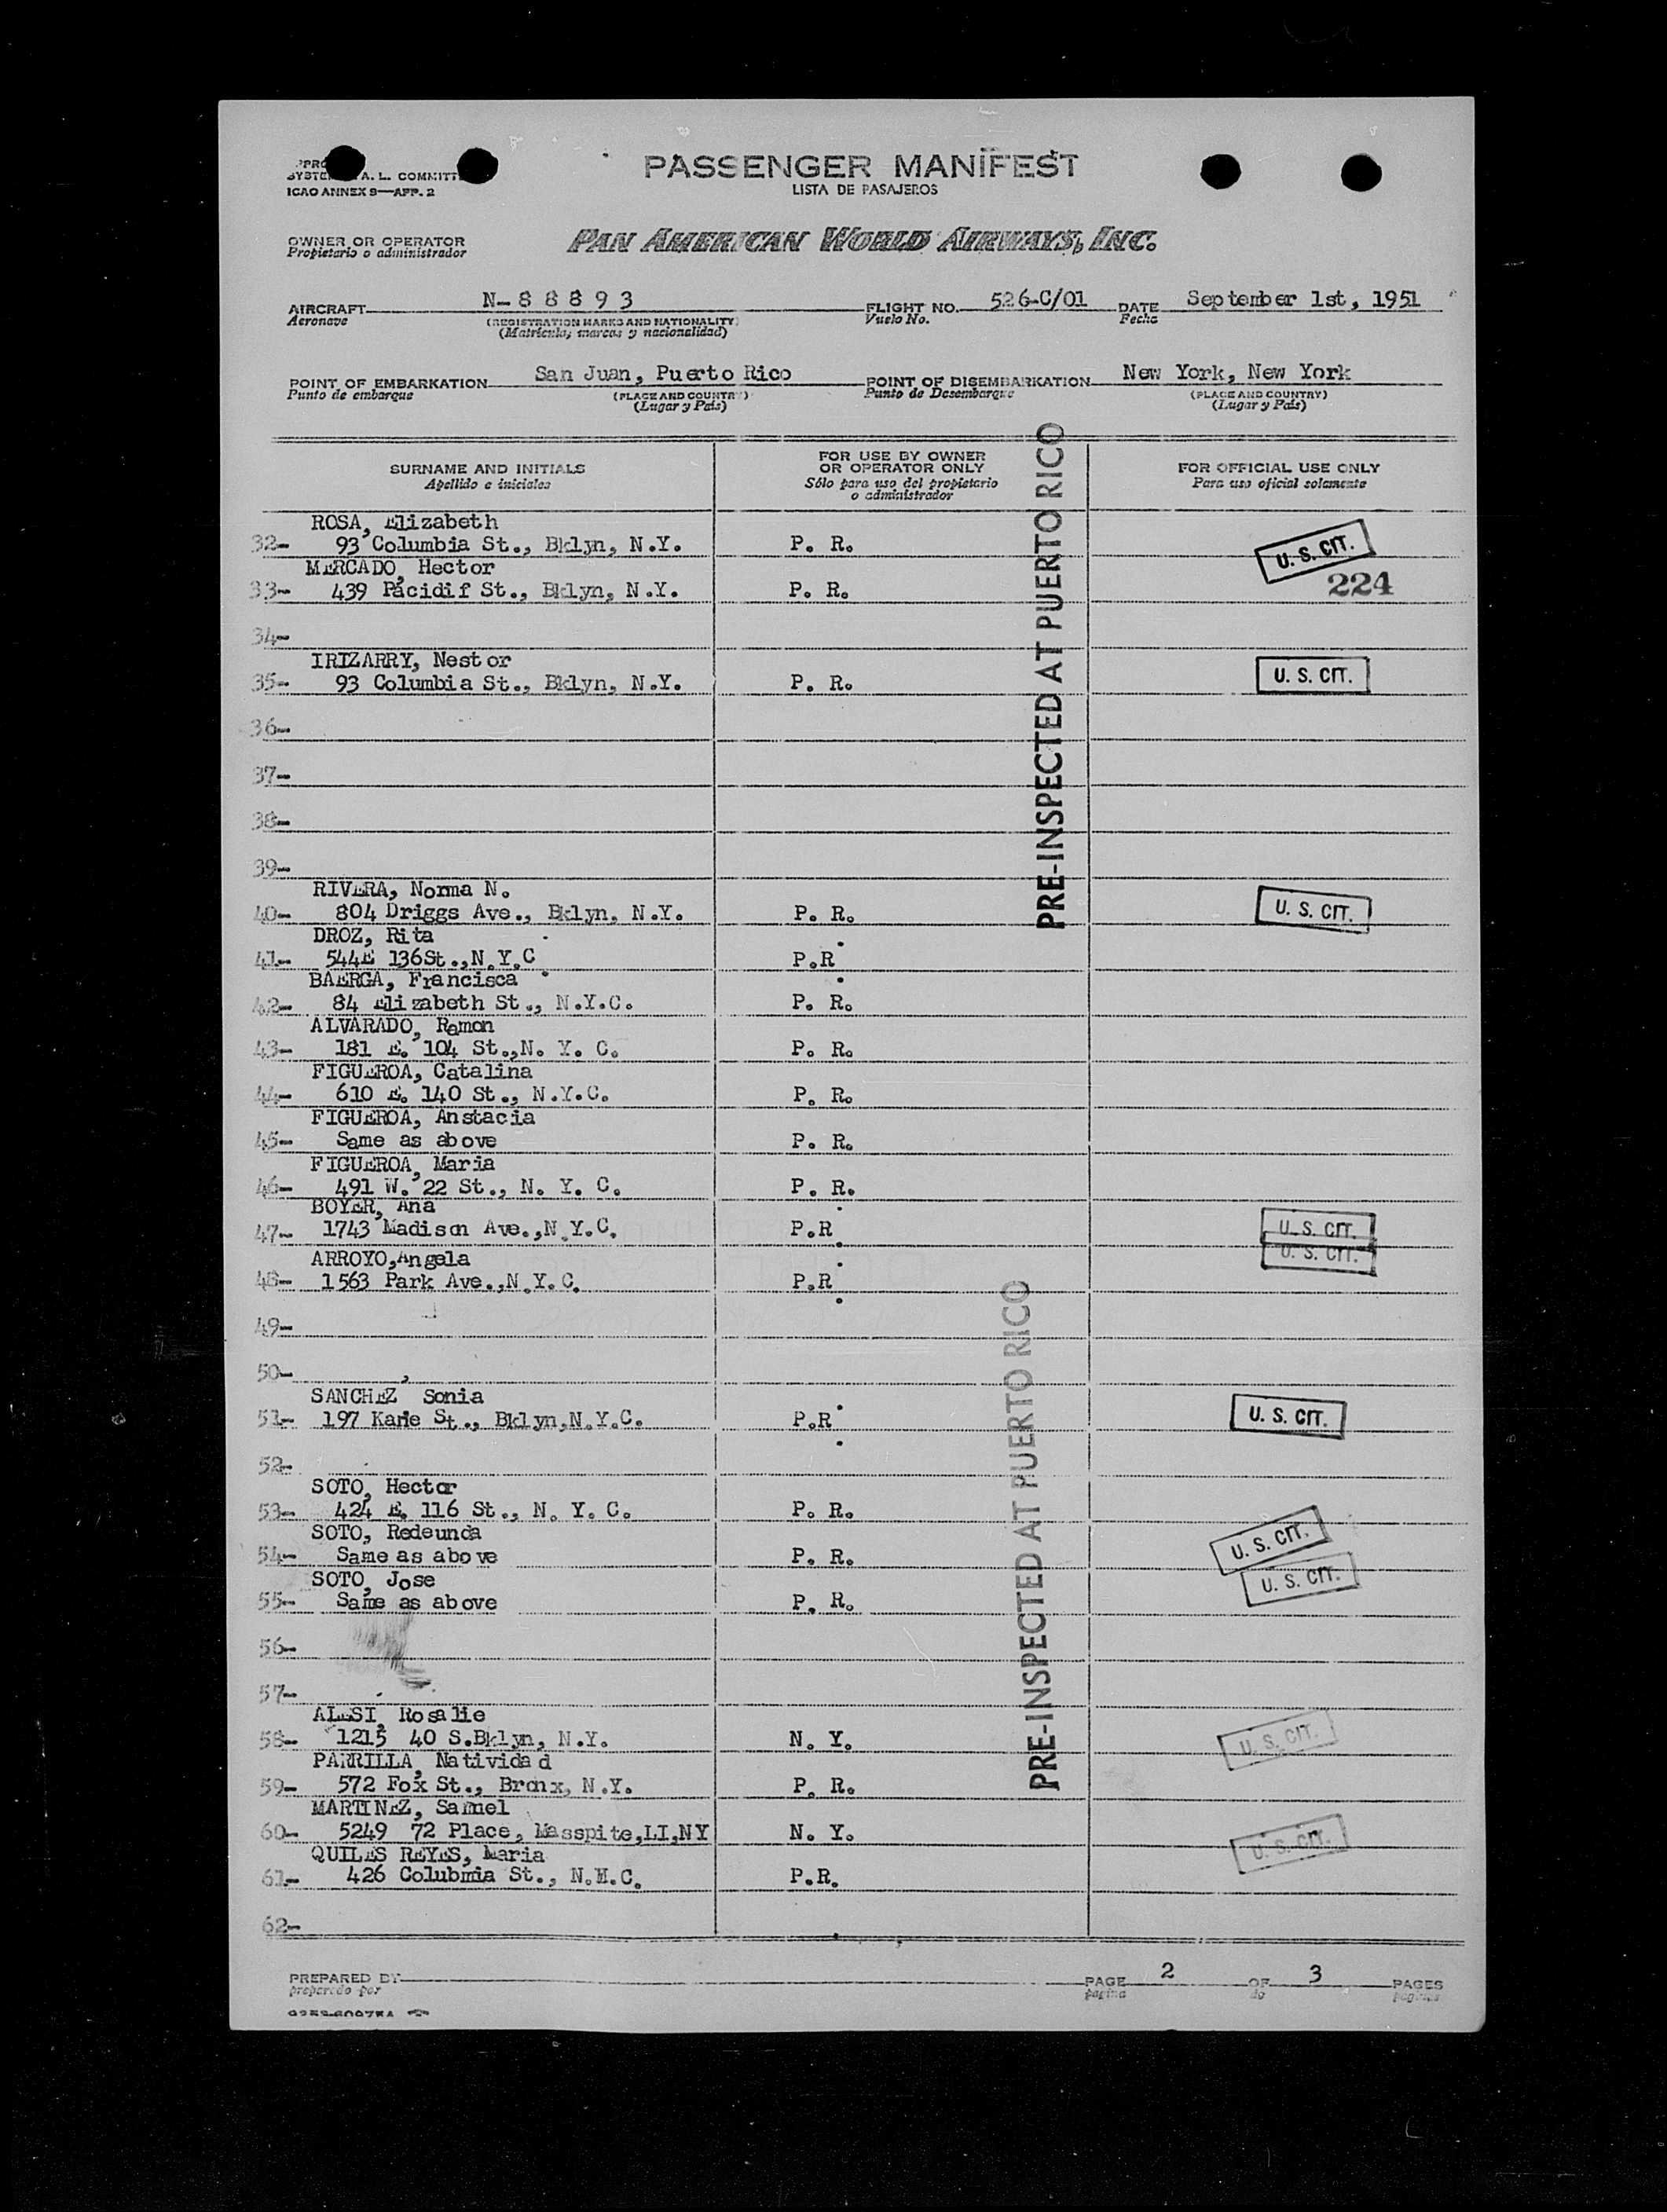 PASSENGER MANIFEST
LISTA DE PASAJEROS
A. L. COMMITT
ICAO ANNEX 9—APP. 2
OWNER OR OPERATOR
Propietario o administrador
PAN AMERICAN WORLD AIRWAYS, INC.
AIRCRAFT N-88893 FLIGHT NO. 526-C/01 DATE September 1st, 1951
Aeronave (REGISTRATION MARKS AND NATIONALITY) Vuelo No. Fecha
(Matrícula, marcas y nacionalidad)
POINT OF EMBARKATION San Juan, Puerto Rico POINT OF DISEMBARKATION New York, New York
Punto de embarque (PLACE AND COUNTRY) Punto de Desembarque (PLACE AND COUNTRY)
(Lugar y País) (Lugar y País)
SURNAME AND INITIALS
Apellido e iniciales
FOR USE BY OWNER
OR OPERATOR ONLY
Sólo para uso del propietario
o administrador
FOR OFFICIAL USE ONLY
Para uso oficial solamente
PRE-INSPECTED AT PUERTO RICO
ROSA, Elizabeth
32- 93 Columbia St., Bklyn, N.Y. P. R. U. S. CIT.
MERCADO, Hector
33- 439 Pacidif St., Bklyn, N.Y. P. R. 224
34-
IRIZARRY, Nestor
35- 93 Columbia St., Bklyn, N.Y. P. R. U. S. CIT.
36-
37-
38-
39-
RIVERA, Norma N.
40- 804 Driggs Ave., Bklyn, N.Y. P. R. U. S. CIT.
DROZ, Rita
41- 544E 136St.,N.Y.C P.R
BAERGA, Francisca
42- 84 Elizabeth St., N.Y.C. P. R.
ALVARADO, Ramon
43- 181 E. 104 St.,N. Y. C. P. R.
FIGUEROA, Catalina
44- 610 E. 140 St., N.Y.C. P. R.
FIGUEROA, Anstacia
45- Same as above P. R.
FIGUEROA, Maria
46- 491 W. 22 St., N. Y. C. P. R.
BOYER, Ana
47- 1743 Madison Ave.,N.Y.C. P.R U. S. CIT.
ARROYO,Angela U. S. CIT.
48- 1563 Park Ave.,N.Y.C. P.R
49-
50-
PRE-INSPECTED AT PUERTO RICO
SANCHEZ, Sonia
51- 197 Karie St., Bklyn,N.Y.C. P.R U. S. CIT.
52-
SOTO, Hector
53- 424 E. 116 St., N. Y. C. P. R.
SOTO, Redeunda
54- Same as above P. R. U. S. CIT.
SOTO, Jose
55- Same as above P. R. U. S. CIT.
56-
57-
ALESI, Rosalie
58- 1215 40 S.Bklyn, N.Y. N. Y. U. S. CIT.
PARRILLA, Natividad
59- 572 Fox St., Bronx, N.Y. P. R.
MARTINEZ, Samuel
60- 5249 72 Place, Masspite,LI,NY N. Y. U. S. CIT.
QUILES REYES, Maria
61- 426 Colubmia St., N.Y.C. P.R.
62-
PREPARED BY PAGE 2 OF 3 PAGES
preparado por página de páginas